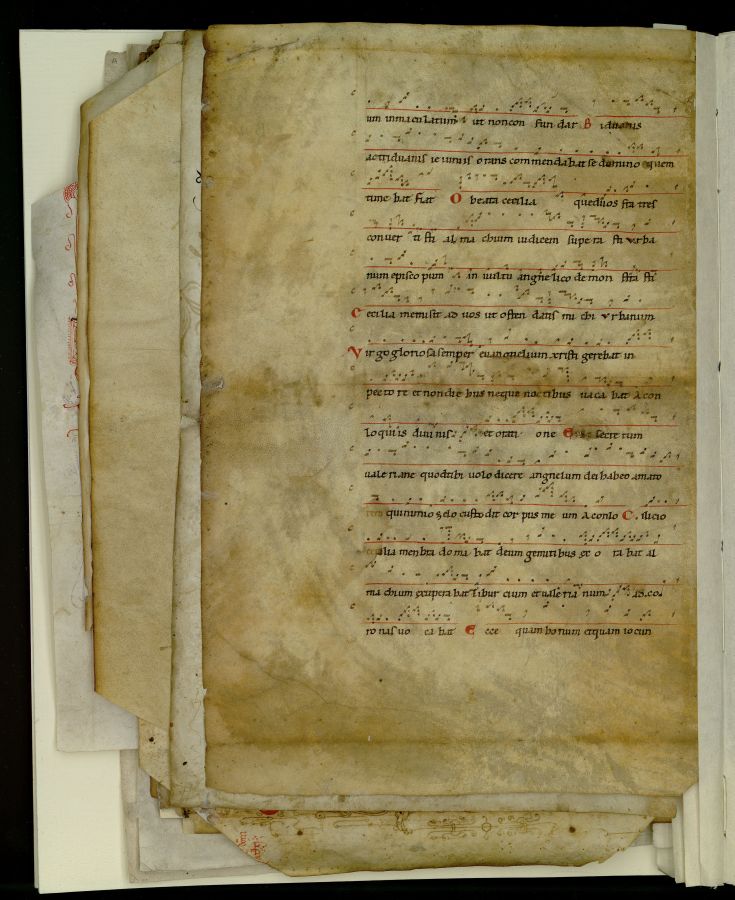 um inmaculatum ut non con fun dar B iduanis
ac triduanis ieiuniis orans commendabat se domino quem
time bat fiat O beata cecilia que duos fratres
conver ti sti al ma chium iudicem supe ra sti vrba
num episco pum in uultu angne lico de mon stra sti
C ecilia me misit ad uos ut osten datis mi chi vrbanum
V irgo gloriosa semper euangnelium xristi gerebat in
pec to re et non die bus neque noc tibus uaca bat A con
loquiis diui nis et orati one E secre tum
ualeriane quod tibi uolo dicere angnelum dei habeo amato
rem qui nimio zelo custo dit cor pus me um A conlo C ilicio
cecilia menbra do ma bat deum gemiti bus ex o ra bat al
ma chium exupera bat Tibur cium et uale ria num ad co
ro nas uo ca bat E cce quam bonum et quam iocun